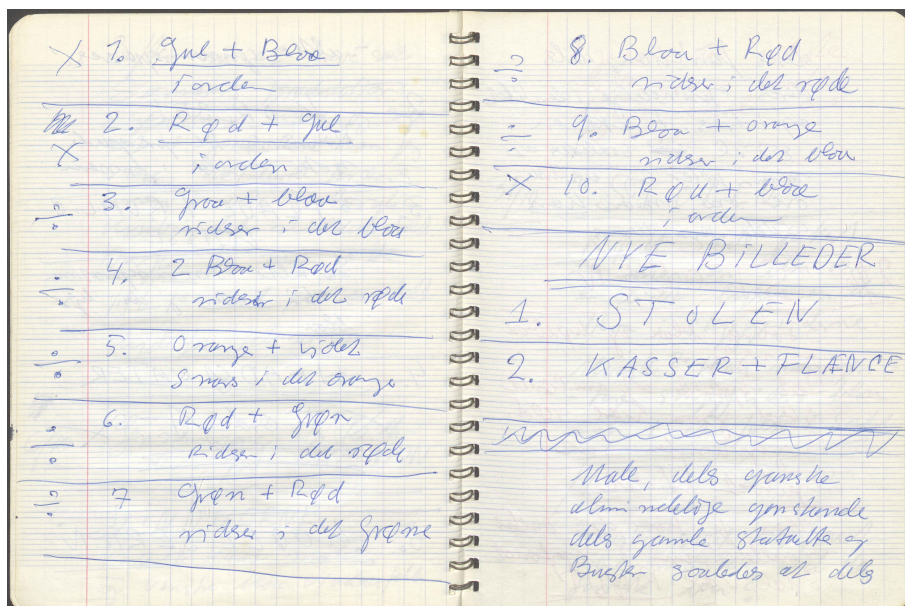 X 1. Gul + Blaa
i orden
2. Rød + gul
X i orden
÷ 3. Graa + blaa
ridser i det blaa
÷ 4. 2 Blaa + Rød
ridser i det røde
÷ 5. Orange + violet
i det orange
÷ 6. Rød + Grøn
Ridser i det røde
÷ 7 Grøn + Rød
ridser i det Grønne
÷ 8. Blaa + Rød
ridser i det røde
÷ 9. Blaa + orange
ridser i det blaa
X 10. Rød + blaa
i orden
NYE BILLEDER
1. STOLEN
2. KASSER + FLANCE
Male, dels ganske
almindelige genstande
dels gamle statuetter og
Buster saaledes at dels